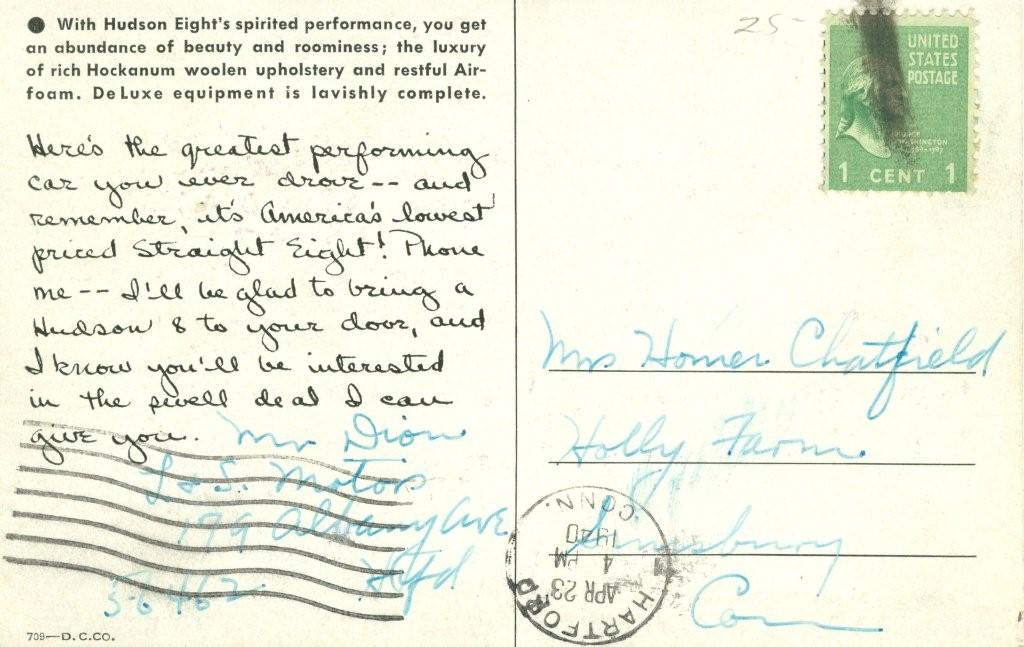 ● With Hudson Eight's spirited performance, you get
an abundance of beauty and roominess; the luxury
of rich Hockanum woolen upholstery and restful Air-
foam. De Luxe equipment is lavishly complete.
Here's the greatest performing
car you ever drove -- and
remember, it's America's lowest
priced Straight Eight! Phone
me -- I'll be glad to bring a
Hudson 8 to your door, and
I know you'll be interested
in the swell deal I can
give you.
Mr Dion
L & S. Motors
179 Albany Ave
Htfd
5-6462
709—D.C.CO.
25-
UNITED
STATES
POSTAGE
WASHINGTON
1 CENT 1
Mrs Homer Chatfield
Holly Farm
Simsbury
Conn
HARTFORD
APR 23
4 PM
1940
CONN.